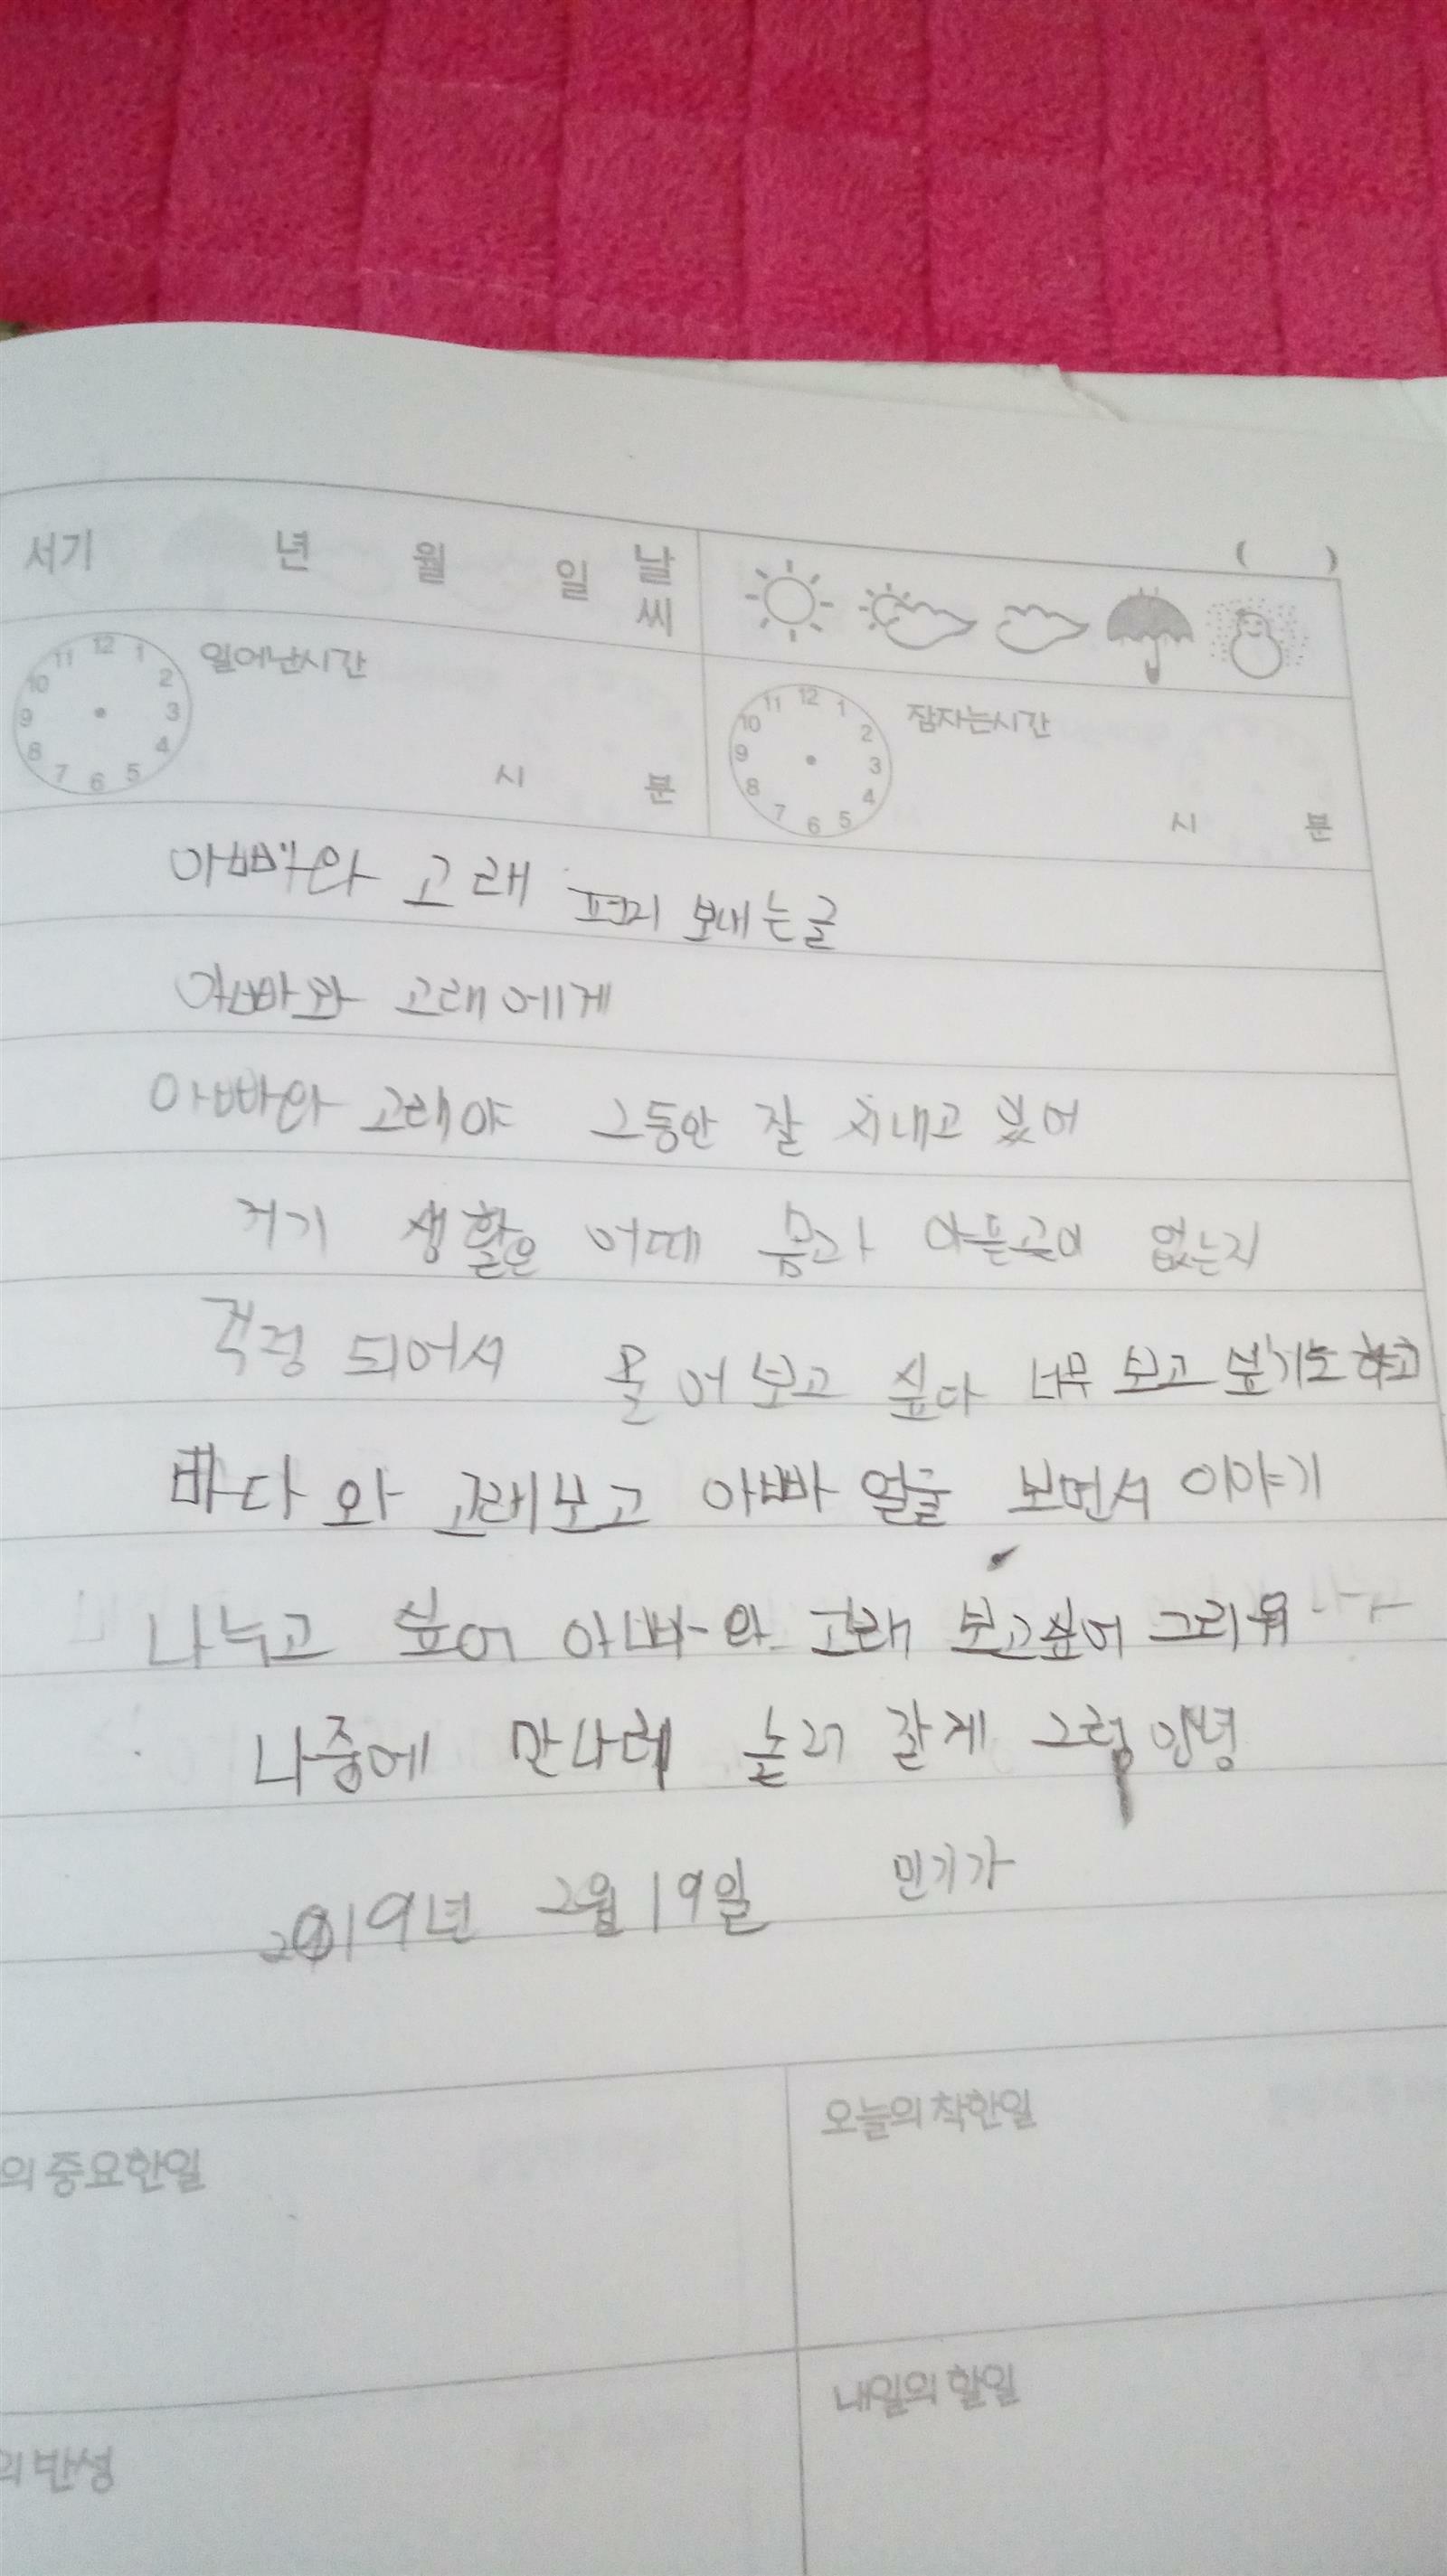 ( )
서기 년 월 일 날씨
12 1 2 3 4 5 6 7 8 9 10 11 일어난시간 시 분
12 1 2 3 4 5 6 7 8 9 10 11 잠자는시간 시 분
아빠와 고래 보내는글
아빠와 고래에게
아빠와 고래야 그동안 잘 지내고 있어
거기 생활은 어때 몸과 아픈곳이 없는지
걱정 되어서 물어보고 싶다 너무 보고 싶기도 하고
바다와 고래보고 아빠 얼굴 보면서 이야기
나누고 싶어 아빠와 고래 보고싶어 그리워
나중에 만나러 놀러 갈게 그럼 안녕
2019년 2월 19일 민기가
의 중요한일 오늘의 착한일
의 반성 내일의 할일